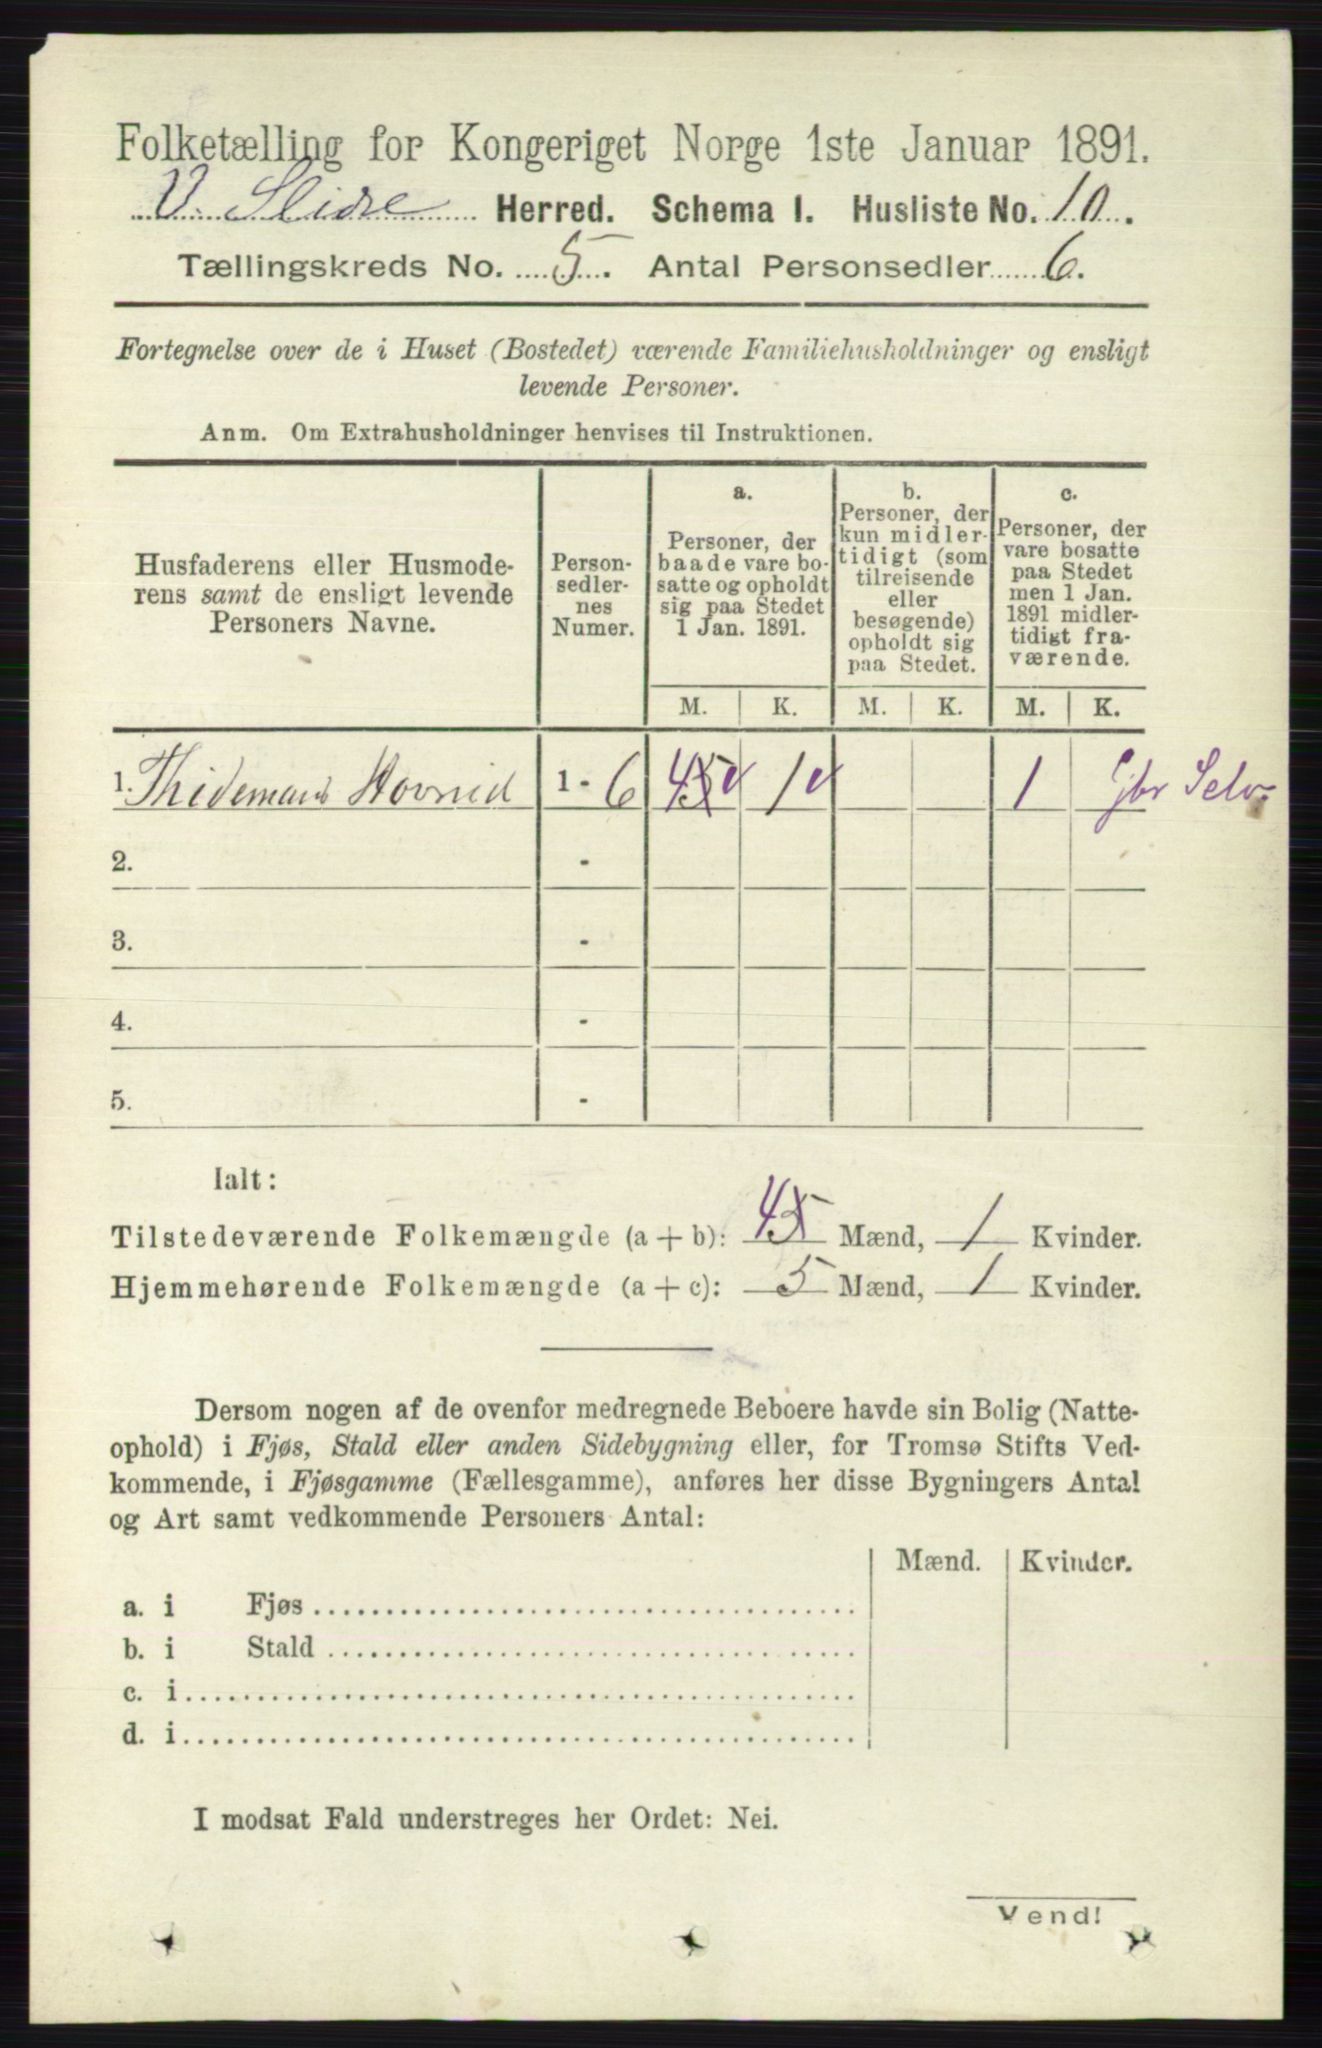 Folketælling for Kongeriget Norge 1ste Januar 1891.
V. Slidre Herred. Schema I. Husliste No. 10.
Tællingskreds No. 5. Antal Personsedler 6.
Fortegnelse over de i Huset (Bostedet) værende Familiehusholdninger og ensligt
levende Personer.
Anm. Om Extrahusholdninger henvises til Instruktionen.
Husfaderens eller Husmode-
rens samt de ensligt levende
Personers Navne.
Person-
sedler-
nes
Numer.
a.
Personer, der
baade vare bo-
satte og opholdt
sig paa Stedet
1 Jan. 1891.
b.
Personer, der
kun midler-
tidigt (som
tilreisende
eller
besøgende)
opholdt sig
paa Stedet.
c.
Personer, der
vare bosatte
paa Stedet
men 1 Jan.
1891 midler-
tidigt fra-
værende.
M. K. M. K. M. K.
1. Thidemand 1 - 6 4 5 1 1
2. -
3. -
4. -
5. -
Ialt:
Tilstedeværende Folkemængde (a + b): 4 5 Mænd, 1 Kvinder.
Hjemmehørende Folkemængde (a + c): 5 Mænd, 1 Kvinder.
Dersom nogen af de ovenfor medregnede Beboere havde sin Bolig (Natte-
ophold) i Fjøs, Stald eller anden Sidebygning eller, for Tromsø Stifts Ved-
kommende, i Fjøsgamme (Fællesgamme), anføres her disse Bygningers Antal
og Art samt vedkommende Personers Antal:
Mænd. Kvinder.
a. i Fjøs
b. i Stald
c. i
d. i
I modsat Fald understreges her Ordet: Nei.
Vend!